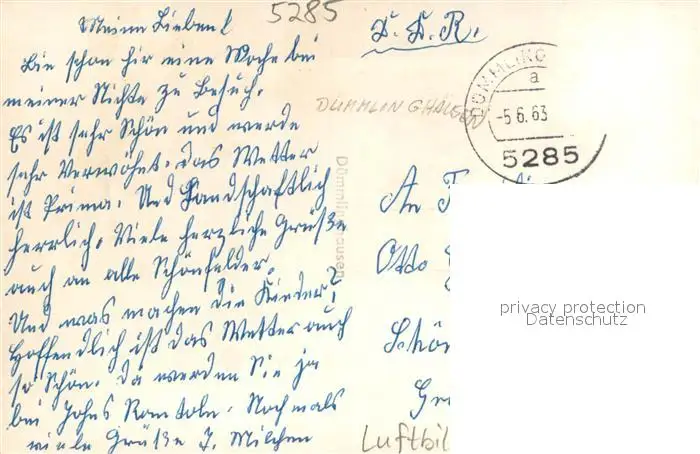 Meine Lieben!
Bin schon hir eine Woche bei
meiner Nichte zu Besuch.
Es ist sehr Schön und werde
sehr Verwöhnt. das Wetter
ist Prima. Und Landschaftlich
herrlich. Viele herzliche Grüße
auch an alle Schönfelder.
Und was machen die Kinder?
Hoffendlich ist das Wetter auch
so Schön. da werden Sie ja
bei Johns Nochmals
viele Grüße J. Milchen
5285
D.D.R.
DÜMMLINGHAUSEN
DÜMMLING
a
-5.6.63
5285
Dümmlinghausen
An
Otto
Schön
Luftbil
privacy protection
Datenschutz